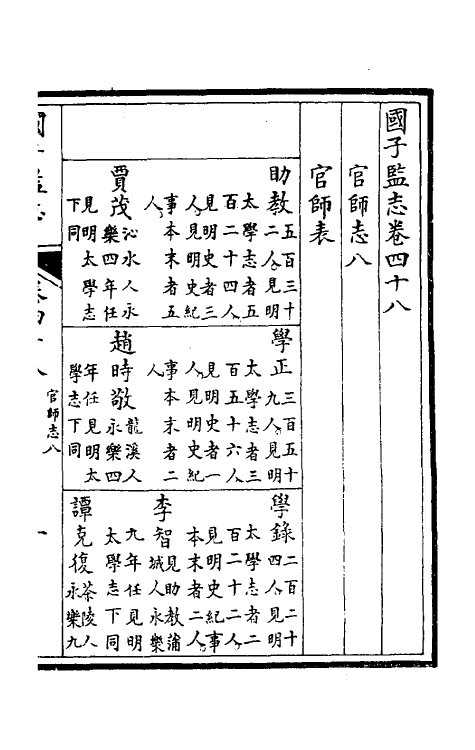 國子監志卷四十八
官師志八
官師表
助教五百三十
二人見明
太學志者五
百二十四人
見明史者三
人見明史紀
事本末者五
人
賈茂沁水人永
樂四年任
見明太學志
下同
學正三百五十
九人見明
太學志者三
百五十六人
見明史者一
人見明史紀
事本末者二
人
趙時敬龍溪人
永樂四
年任見明太
學志下同
學錄二百二十
四人見明
太學志者二
百二十二人
見明史紀事
本末者二人
李智見助教蒲
城人永樂
九年任見明
太學志下同
譚克復茶陵人
永樂九
國子監志
卷四十八
官師志八
一